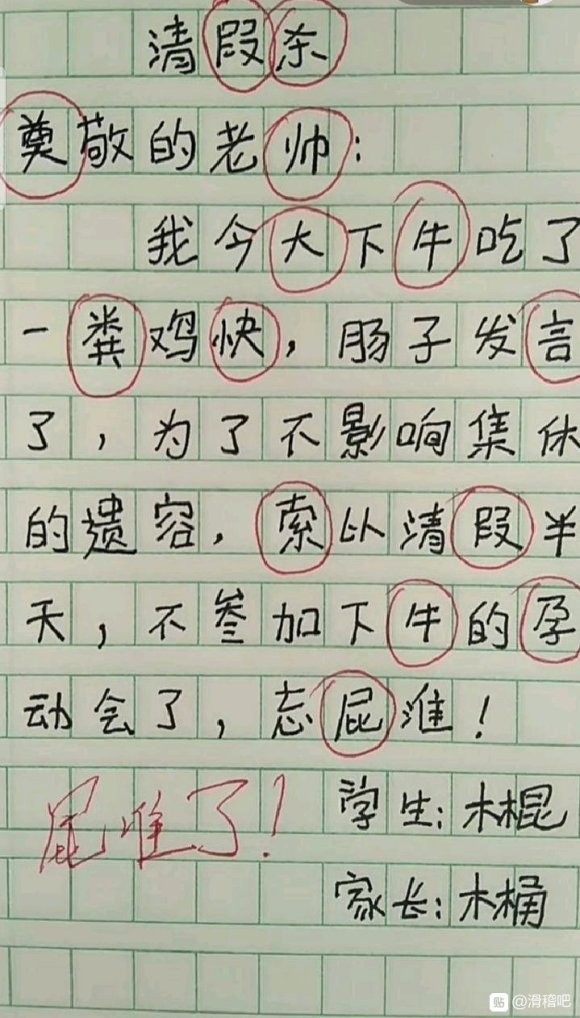 清叚杀
奠敬的老帅：
我今大下牛吃了
一粪鸡快，肠子发言
了，为了不影响集休
的遗容，索以清叚半
天，不叁加下牛的孕
动会了，忘屁准！
屁准了！
学生：木棍
家长：木桶
贴 @滑稽吧